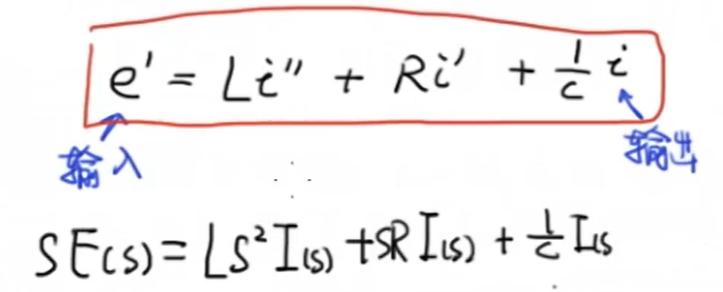 e' = Li'' + Ri' + 1/c i
输入 输出
∴
SE(s) = LS²I(s) + SRI(s) + 1/c I(s